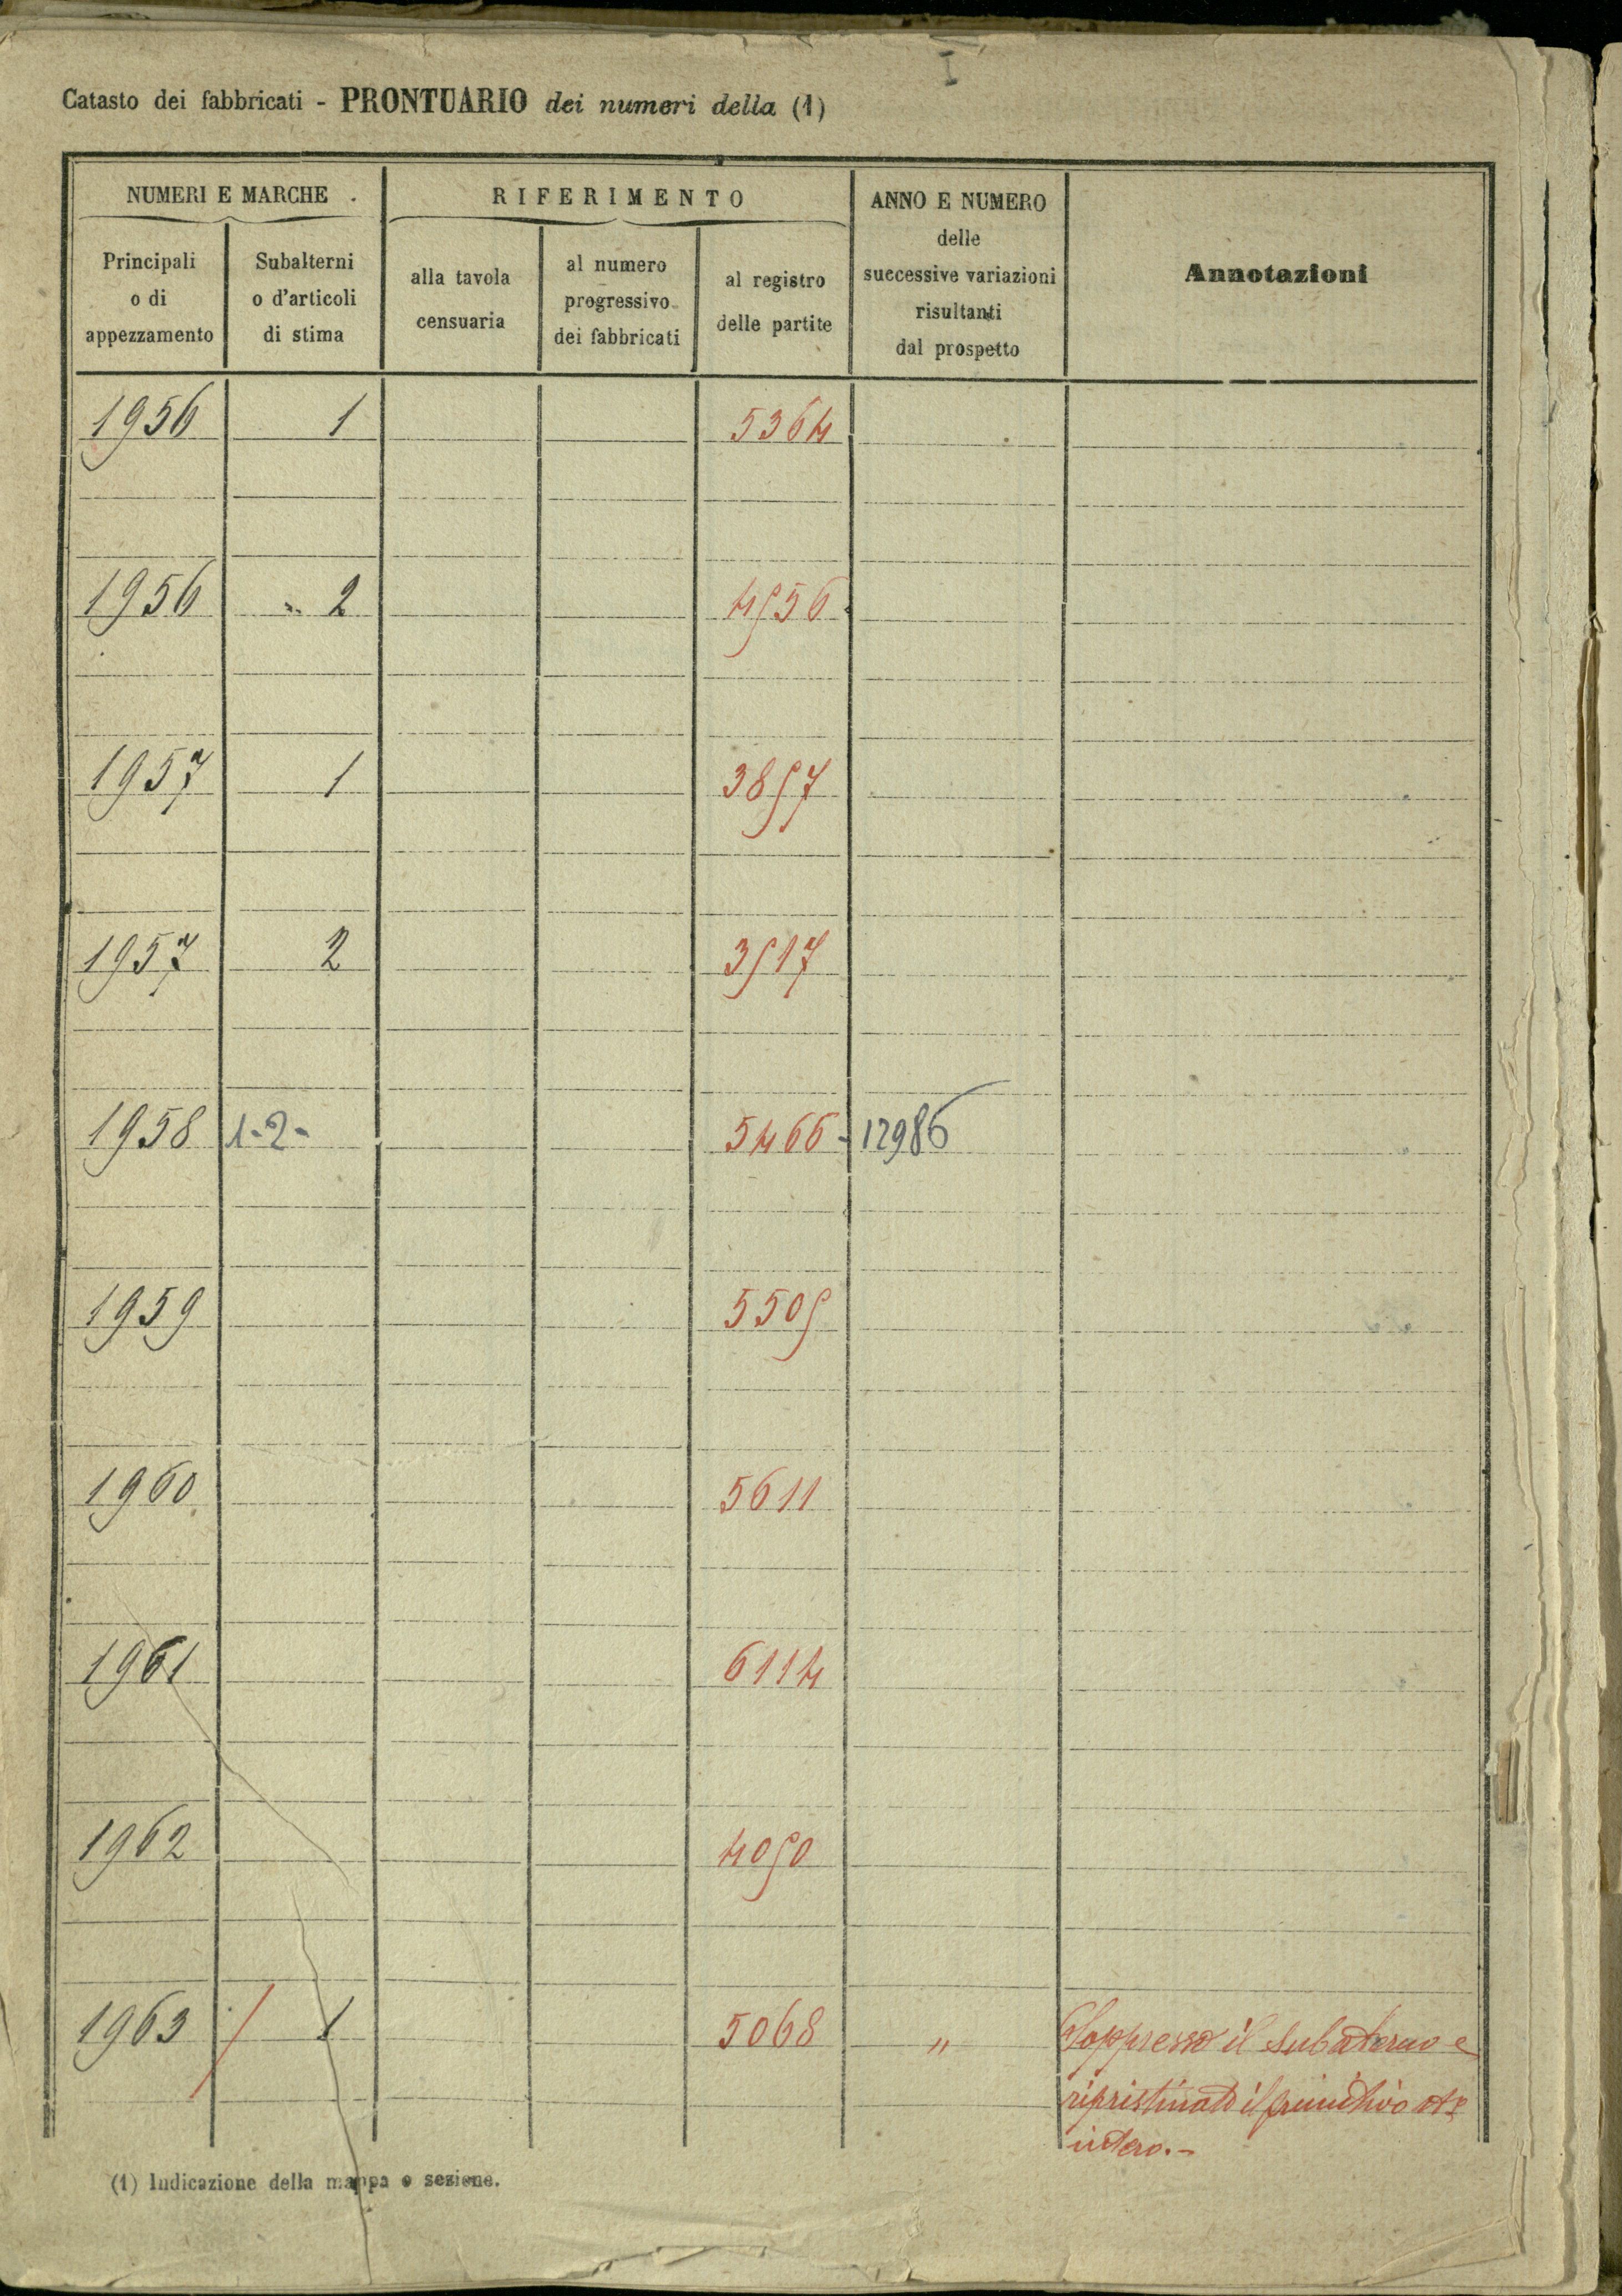 I
Catasto dei fabbricati - PRONTUARIO dei numeri della (1)
NUMERI E MARCHE
RIFERIMENTO
ANNO E NUMERO
delle
successive variazioni
risultanti
dal prospetto
Annotazioni
Principali
o di
appezzamento
Subalterni
o d'articoli
di stima
alla tavola
censuaria
al numero
progressivo
dei fabbricati
al registro
delle partite
1956 1 5364
1956 2 4956
1957 1 3897
1957 2 3917
1958 1-2- 5466 - 12986
1959 5509
1960 5611
1961 6114
1962 4090
1963 / 1 5068 " Soppresso il subalterno e
ripristinato il primitivo
intero.-
(1) Indicazione della mappa o sezione.